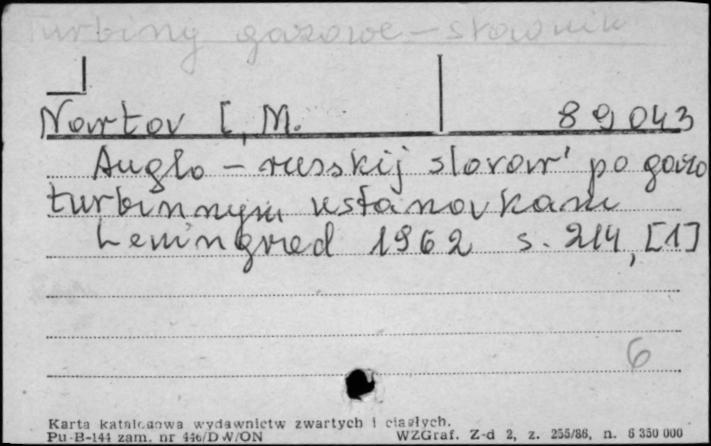 Turbiny gazowe - słownik
Nartov I, M. 89043
Anglo - russkij slovar' po gazo
turbinnym ustanovkam
Leningrad 1962 s. 214, [1]
6
Karta katalogowa wydawnictw zwartych i ciągłych.
Pu-B-144 zam. nr 446/DW/ON WZGraf. Z-d 2, z. 255/86, n. 6 350 000